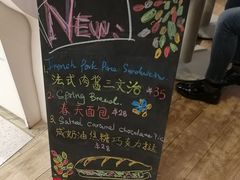 New:
1. French Pork Pate Sandwich
法式肉酱三文治 ¥35
2. Spring Bread.
春天面包 ¥28
3. Salted caramel chocolate
咸奶油焦糖巧克力挞
¥28